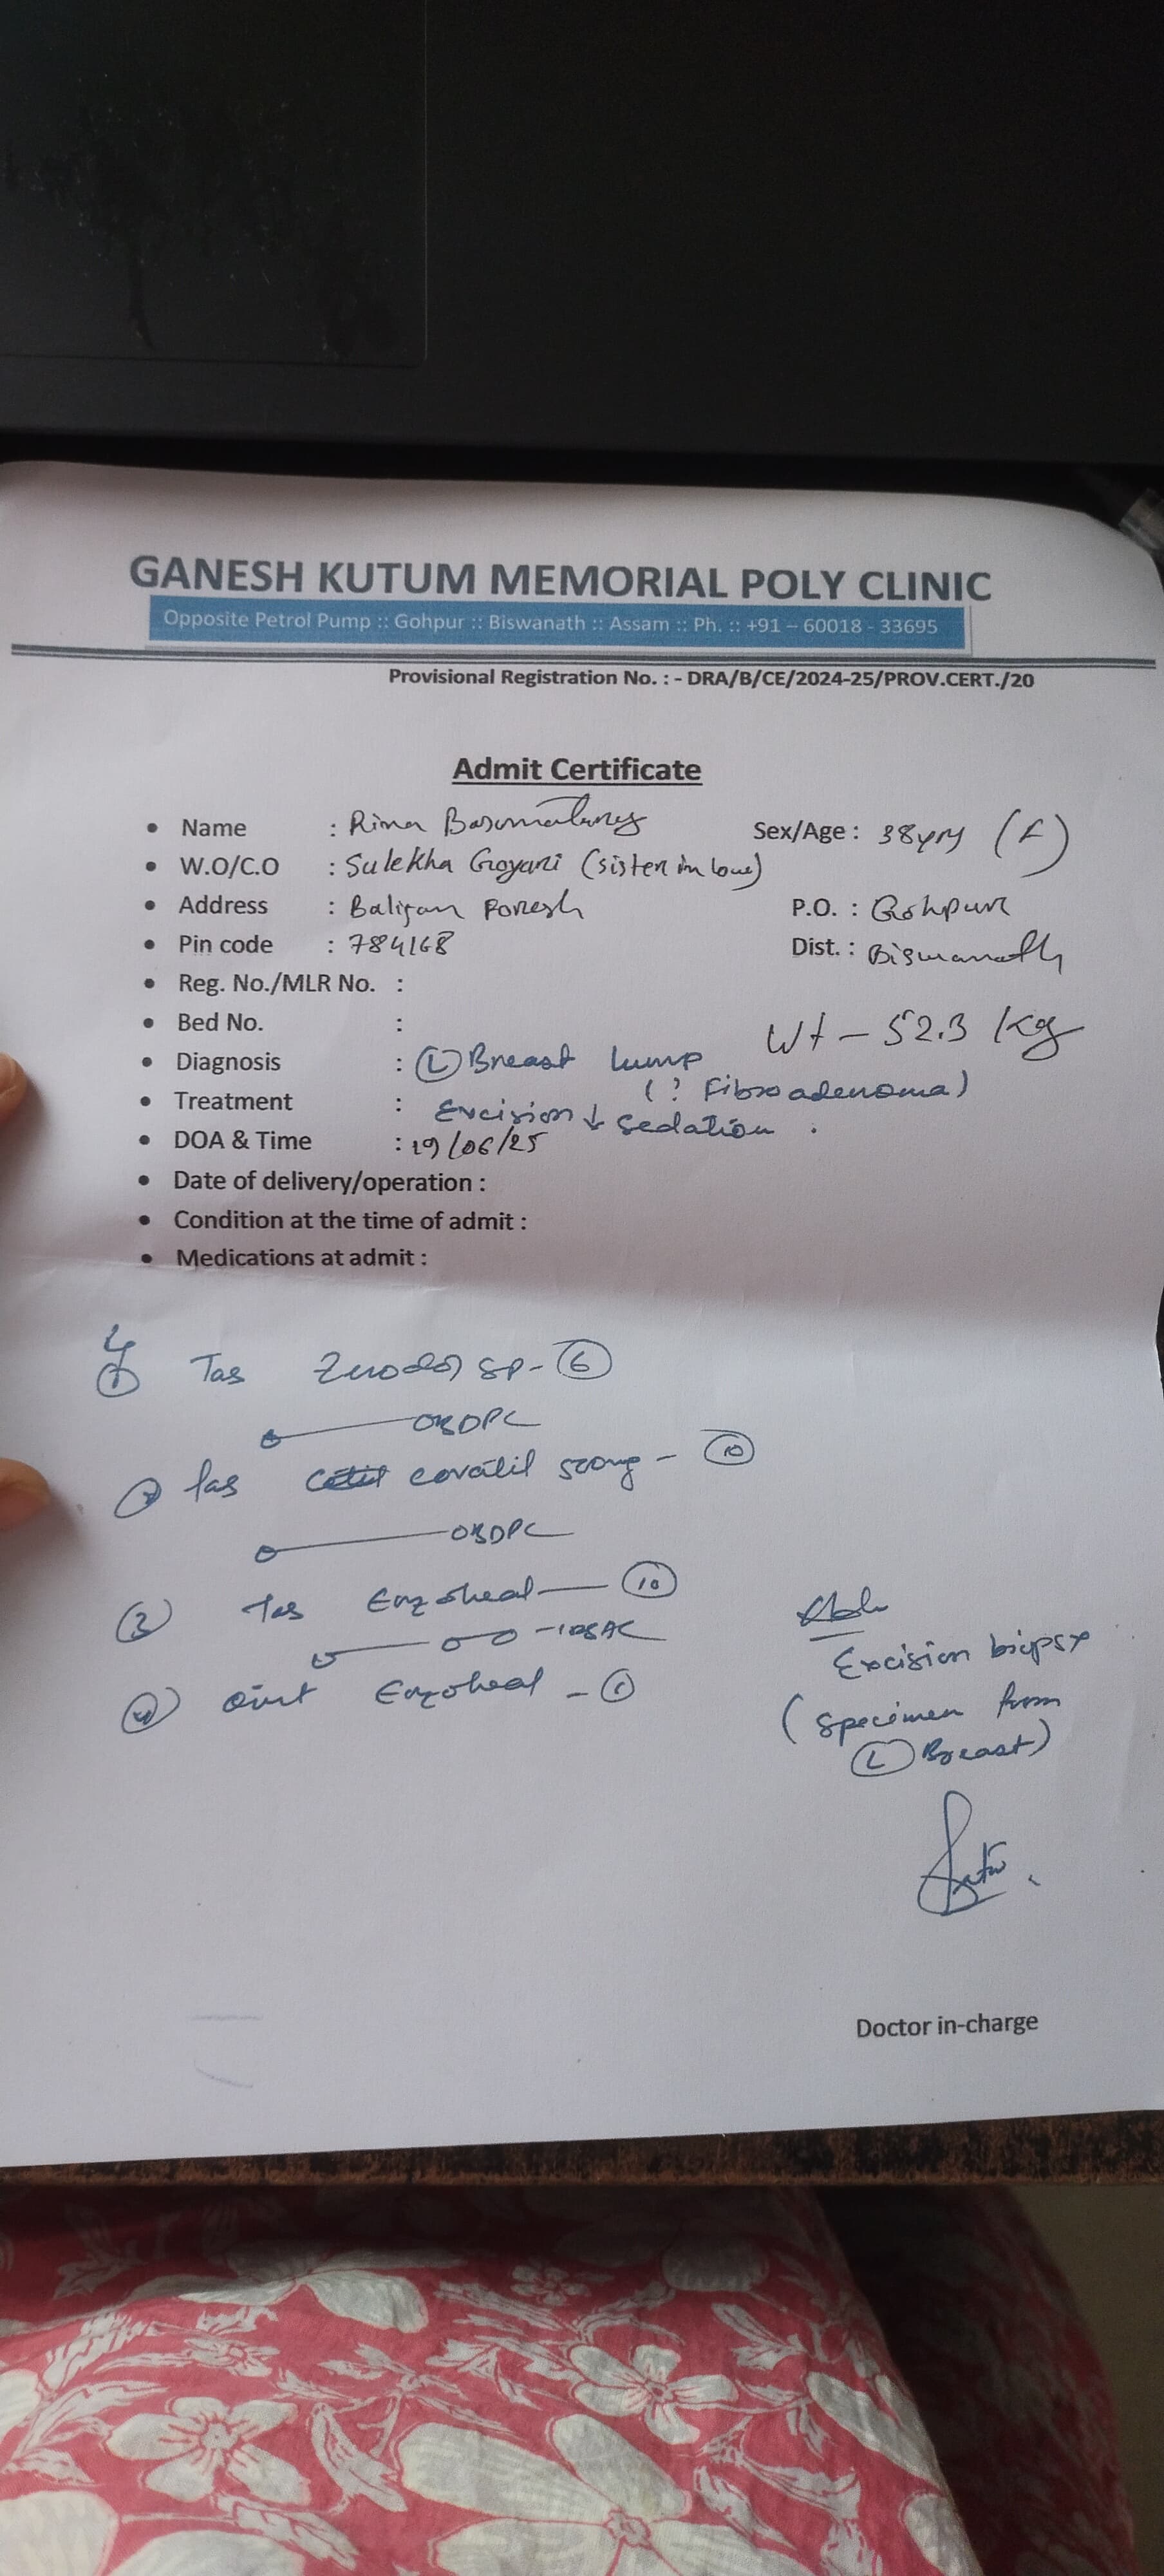 GANESH KUTUM MEMORIAL POLY CLINIC
Opposite Petrol Pump :: Gohpur :: Biswanath :: Assam :: Ph. :: +91 – 60018 - 33695
Provisional Registration No. : - DRA/B/CE/2024-25/PROV.CERT./20
Admit Certificate
• Name : Rima Basumatary Sex/Age : 38yrs (F)
• W.O/C.O : Sulekha Goyari (sister in law)
• Address : Balijan Foresh P.O. : Gohpur
• Pin code : 784168 Dist. : Biswanath
• Reg. No./MLR No. :
• Bed No. : Wt – 52.3 kg
• Diagnosis : (L) Breast lump
(? Fibroadenoma)
• Treatment : Excision ↓ sedation .
• DOA & Time : 19/06/25
• Date of delivery/operation :
• Condition at the time of admit :
• Medications at admit :
① Tab Zerodol SP - ⑥
② Tab covatil 500mg - ⑩
③ Tab Enzoheal — ⑩
④ oint Enzoheal - ①
Excision biopsy
(specimen from
(L) Breast)
Doctor in-charge